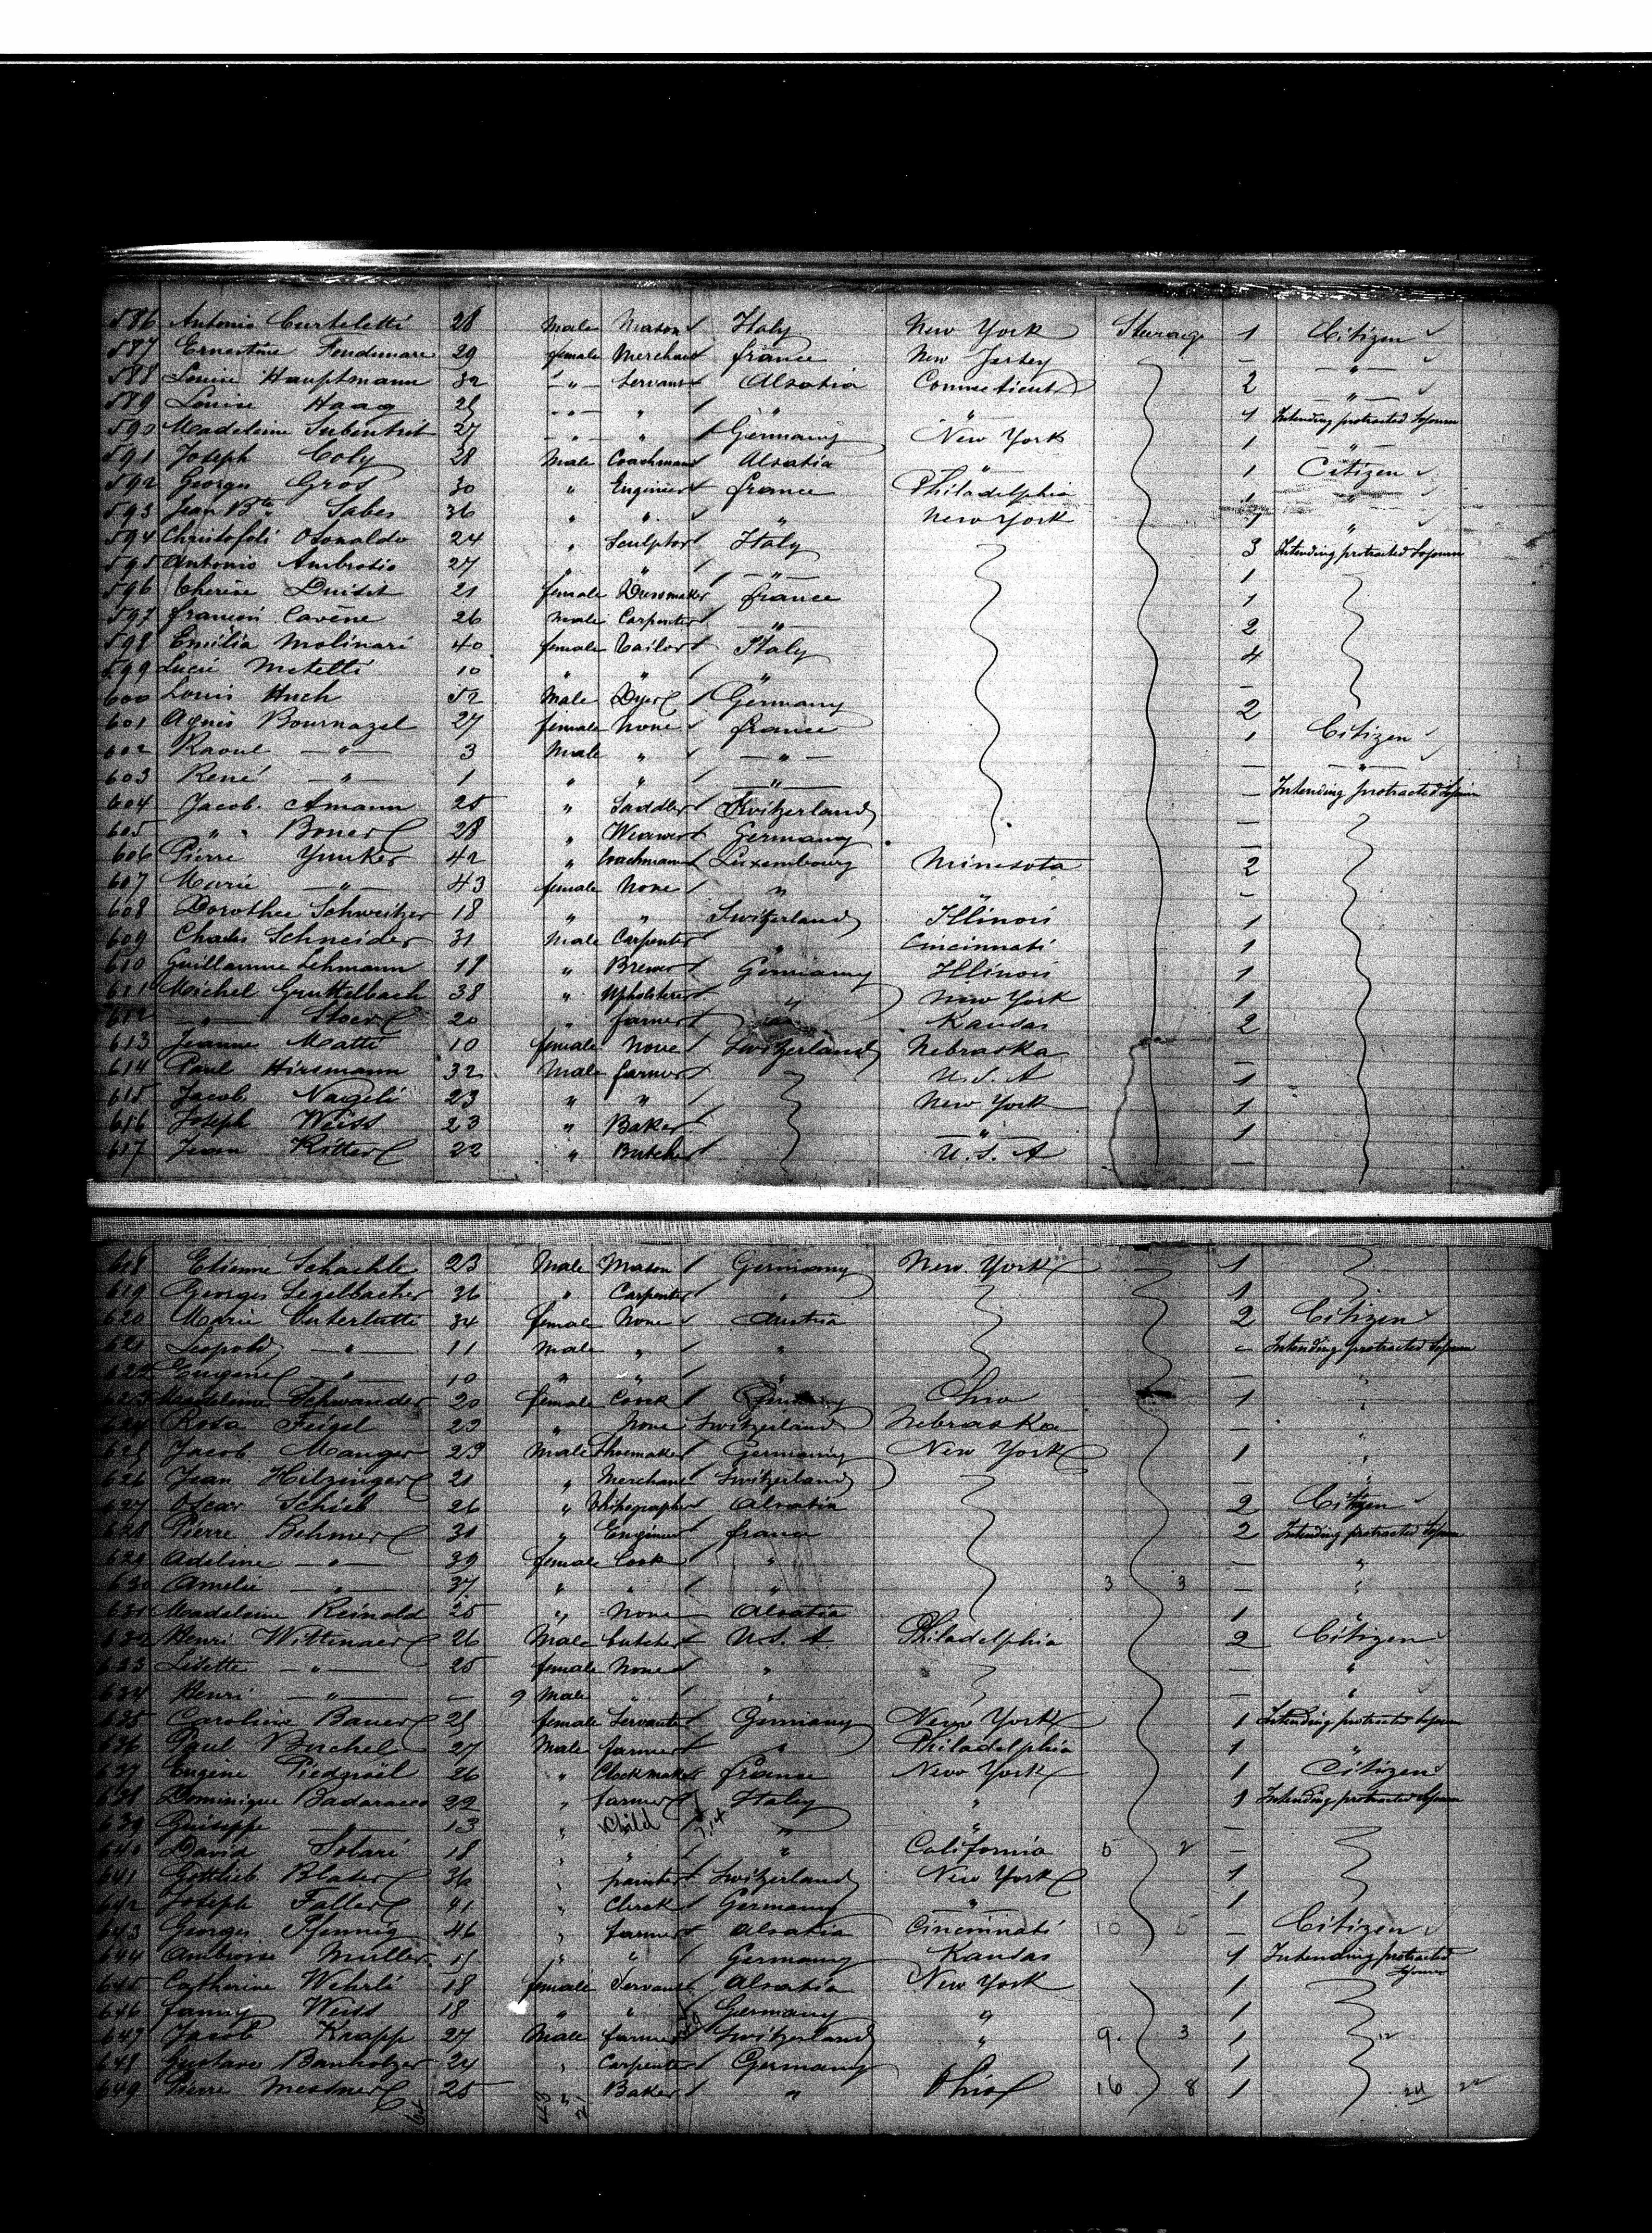 586 Antonio Curteletti 28 Male Mason Italy New York Steerage 1 Citizen
587 Ernestine 29 female Merchant france New Jersey — — " —
588 Louise Hauptmann 32 — " — Servant Alsatia Connecticut 2 — " —
589 Louise Haag " " " 1 Intending protracted Sojourn
590 Madeleine 27 — " — " Germany New York 1 "
591 Joseph Coly 38 Male Coachman Alsatia " 1 Citizen
592 George Gros 30 " Engineer france Philadelphia 1 "
593 Jean Bte Sabes 36 " " " New York 1 "
594 Christofoli Osonaldo 24 " Sculptor Italy 3 Intending protracted Sojourn
595 Antonio Ambrosio 27 " " — " — 1
596 Cherise 21 female Dressmaker france 1
597 Cavene 26 male Carpenter — " — 2
598 Emilia Molinari 40 female Tailor Italy 4
599 Lucie Metelli 10 " " " —
600 Louis Huch 52 Male Dyer Germany 2
601 Agnes Bournazel 27 female none france 1 Citizen
602 Raoul — " — 3 Male " — " — — — " —
603 René — " — 1 " " — " — — Intending protracted Sojourn
604 Jacob Amann 25 " Saddler —
605 " Boner 28 " Weawer Germany —
606 Pierre Yunker 42 " Coachman Luxembourg Minnesota 2
607 Marie — " — 43 female None " " —
608 Dorothee Schweitzer 18 " " Switzerland Illinois 1
609 Charles Schneider 31 Male Carpenter " Cincinnati 1
610 Guillaume Lehmann " Brewer Germany Illinois 1
611 Michel Gruttelbach 38 " Upholsterer " New York 1
612 — " — Stoer 20 " farmer " Kansas 2
613 Jeanne Matti 10 female None Switzerland Nebraska —
614 Paul Hirsmann 32 Male farmer U.S.A 1
615 Jacob Nageli 23 " " New York 1
616 Joseph Weiss 23 " Baker — " — 1
617 Jean Ritter 22 " Butcher U.S.A —
618 Etienne Schachle 23 Male Mason Germany New York 1
619 Georges Segelbacher 36 " Carpenter " 1
620 Marie 34 female None Austria 2 Citizen
621 Leopold — " — 11 Male " " — Intending protracted Sojourn
622 Eugene — " — 10 " " " — "
623 Madeleine Schwander 20 female Cook Ohio 1 "
624 Rosa Feigel 23 " None Switzerland Nebraska — "
625 Jacob Manger 23 Male Shoemaker Germany New York 1 "
626 Jean Hilzinger 21 " Merchant Switzerland — "
627 Oscar Schieb 26 " Alsatia 2 Citizen
628 Pierre Behmer " Engineer france 2 Intending protracted Sojourn
629 Adeline — " — 39 female Cook " — "
630 Amelie — " — 37 " " " 3 3 — "
631 Madeleine Reinold 25 " None Alsatia 1 "
632 Henri Wittenaer 26 Male butcher U.S.A Philadelphia 2 Citizen
633 Lisette — " — 25 female None " — "
634 Henri — " — — 9 Male " " — "
635 Caroline Bauer female Servant Germany New York 1 Intending protracted Sojourn
636 Paul Buchel 27 Male farmer " Philadelphia 1 "
637 Eugene 26 " Clockmaker france New York 1 Citizen
638 Dominique Badaracco 22 " farmer Italy " 1 Intending protracted Sojourn
639 Guiseppe — " — 13 " Child " " —
640 David Solari 18 " " " California 5 2 —
641 Gottlieb Blaser 36 " painter Switzerland New York 1
642 Joseph Faller 41 " Clerk Germany " 1
643 Georges Pfennig 46 " farmer Alsatia Cincinnati 10 5 — Citizen
644 Ambroise Muller " " Germany Kansas 1 Intending protracted Sojourn
645 Catherine Wehrli 18 female Servant Alsatia New York 1
646 fanny Weiss 18 " " Germany " 1
647 Jacob Krapp 27 Male farmer Switzerland " 9 3 1
648 Gustave Banholzer 24 " Carpenter Germany 1
649 Pierre Mestner 25 " Baker " Ohio 16 8 1